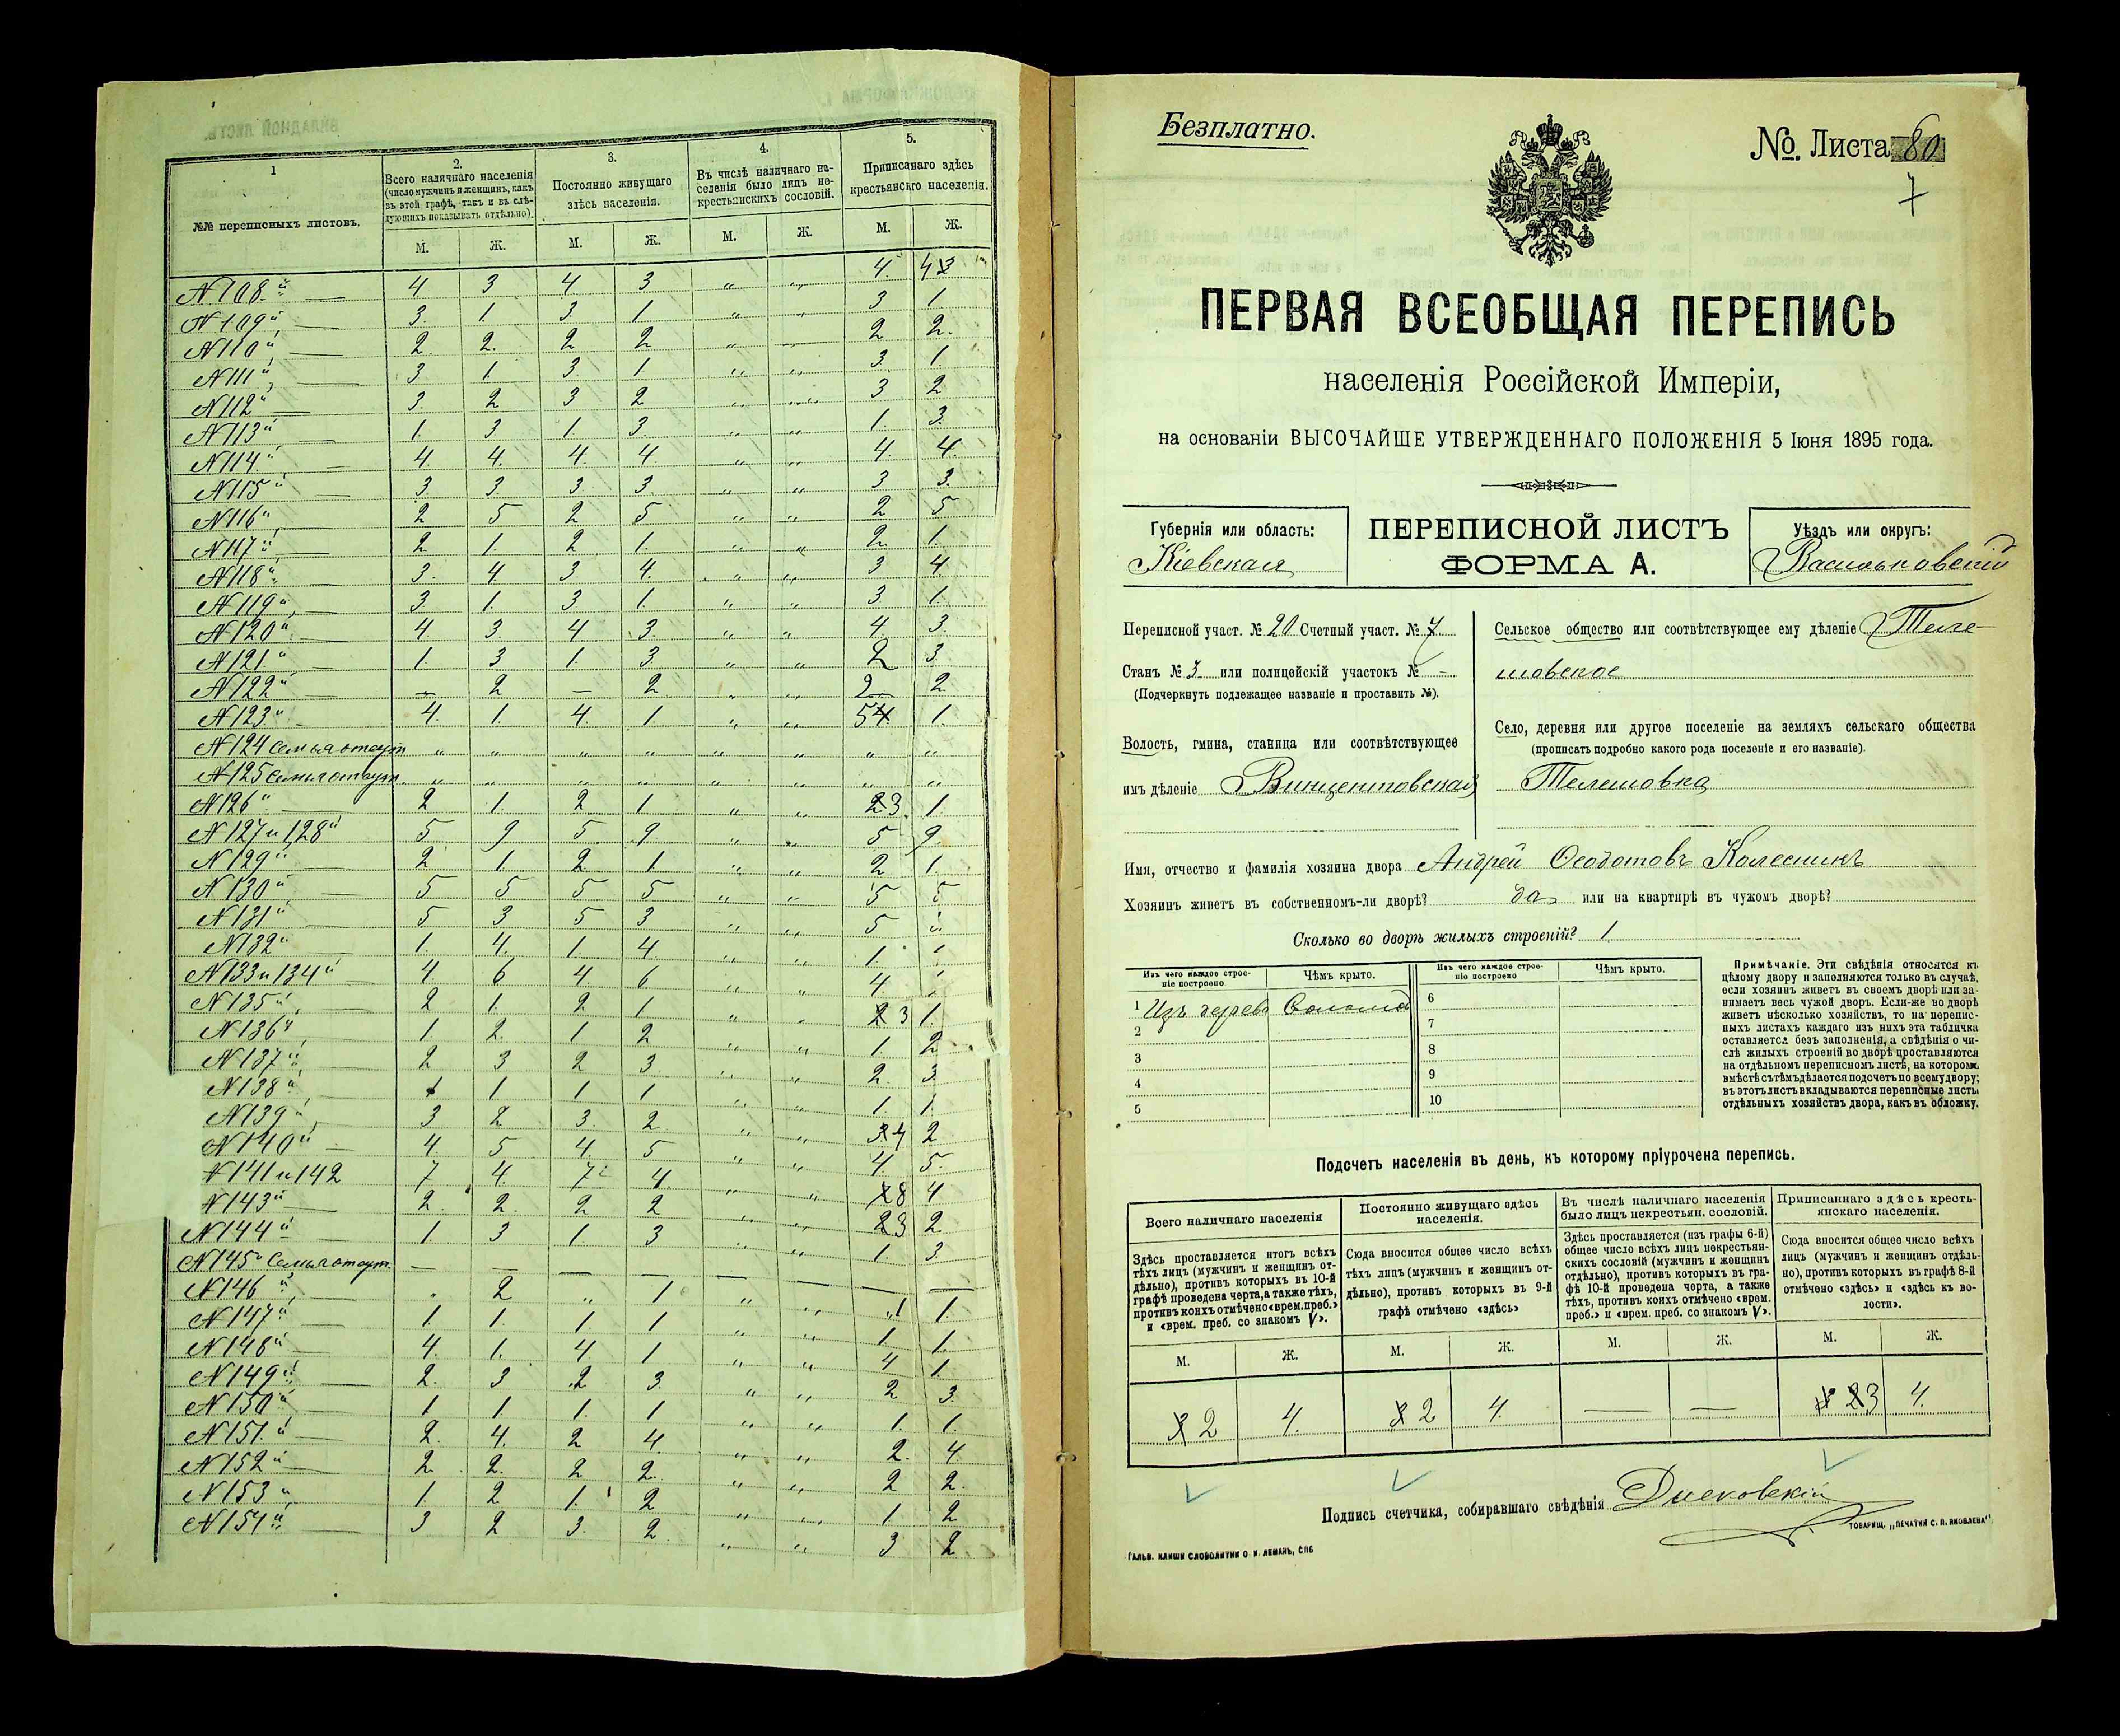 1
№№ переписныхъ листовъ.
2.
Всего наличнаго населенія
(число мужчинъ и женщинъ, какъ
въ этой графѣ, такъ и въ слѣ-
дующихъ показывать отдѣльно).
3.
Постоянно живущаго
здѣсь населенія.
4.
Въ числѣ наличнаго на-
селенія было лицъ не-
крестьянскихъ сословій.
5.
Приписанаго здѣсь
крестьянскго населенія.
М. Ж. М. Ж. М. Ж. М. Ж.
№ 108й 4 3 4 3 „ „ 4. 3
№ 109й 3. 1. 3. 1 „ „ 3 1.
№ 110й 2. 2. 2 2 „ „ 2 2.
№ 111й 3 1 3. 1 „ „ 3. 1.
№ 112й 3. 2 3 2 „ „ 3 2
№ 113й 1. 3 1. 3. „ „ 1. 3.
№ 114й 4. 4. 4. 4 „ „ 4. 4.
№ 115й 3 3. 3. 3. „ „ 3 3.
№ 116й 2 5 2 5 „ „ 2 5
№ 117й 2 1. 2 1. „ „ 2. 1.
№ 118й 3. 4 3 4. „ „ 3 4
№ 119й 3. 1. 3. 1. „ „ 3. 1.
№ 120й 4 3 4 3 „ „ 4. 3.
№ 121й 1. 3 1. 3. „ „ 2 3.
№ 122й — 2 — 2. „ „ 2 2.
№ 123й 4. 1. 4. 1 „ „ 5 1.
№ 124 семья отсут. „ „ „ „ „ „ „ „
№ 125 семья отсут. „ „ „ „ „ „ „ „
№ 126й 2 1. 2 1 „ „ 3. 1.
№ 127 и 128й 5 9 5. 9. „ „ 5 9.
№ 129й 2 1 2 1 „ „ 2 1.
№ 130й 5 5 5 5 „ „ 5 5
№ 131й 5 3 5 3 „ „ 5
№ 132й 1. 4. 1. 4 „ „ 1.
№ 133 и 134й 4 6 4 6 „ „ 4.
№ 135й 2 1. 2 1 „ „ 3 1.
№ 136й 1 2. 1 2 „ „ 1. 2
№ 137й 2 3 2 3. „ „ 2. 3
№ 138й 1 1 1 1 „ „ 1. 1.
№ 139й 3 2 3. 2 „ „ 4 2
№ 140й 4. 5 4. 5 „ „ 4. 5.
№ 141 и 142 7 4. 7 4. „ „ 8 4
№ 143й 2. 2. 2 2 „ „ 3 2
№ 144й 1 3 1 3 „ „ 1 3.
№ 145й Семья отсут. — — — — — — — —
№ 146й . 2 „ 1 „ „ 1 1.
№ 147й 1. 1. 1. 1 „ „ 1. 1.
№ 148й 4. 1. 4 1 „ „ 4 1.
№ 149й 2. 3 2 3. „ „ 2 3.
№ 150й 1 1 1. 1 „ „ 1. 1.
№ 151й 2. 4. 2 4. „ „ 2. 4
№ 152й 2. 2. 2 2. „ „ 2 2.
№ 153й 1. 2 1. 2 „ „ 1 2
№ 154й 3 2 3. 2. „ „ 3 2
Безплатно.
№. Листа 60
7
ПЕРВАЯ ВСЕОБЩАЯ ПЕРЕПИСЬ
населенія Россійской Имперіи,
на основаніи ВЫСОЧАЙШЕ УТВЕРЖДЕННАГО ПОЛОЖЕНІЯ 5 Іюня 1895 года.
Губернія или область:
Кіевская
ПЕРЕПИСНОЙ ЛИСТЪ
ФОРМА А.
Уѣздъ или округъ:
Васильковскій
Переписной участ. № 20 Счетный участ. № 7
Станъ № 3 или полицейскій участокъ № —
(Подчеркнуть подлежащее названіе и проставить №).
Волость, гмина, станица или соотвѣтствующее
имъ дѣленіе Винцентовская
Сельское общество или соотвѣтствующее ему дѣленіе Теле-
шовское
Село, деревня или другое поселеніе на земляхъ сельскаго общества
(прописать подробно какого рода поселеніе и его названіе).
Телешовка
Имя, отчество и фамилія хозяина двора Андрей Ѳеодотовъ Колесникъ
Хозяинъ живетъ въ собственномъ-ли дворѣ? да или на квартирѣ въ чужомъ дворѣ?
Сколько во дворѣ жилыхъ строеній? 1
Изъ чего каждое строе-
ніе построено.
Чѣмъ крыто.
Изъ чего каждое строе-
ніе построено
Чѣмъ крыто.
1 Изъ дерева Соломой 6
2 7
3 8
4 9
5 10
Примѣчаніе. Эти свѣдѣнія относятся къ
цѣлому двору и заполняются только въ случаѣ,
если хозяинъ живетъ въ своемъ дворѣ или за-
нимаетъ весь чужой дворъ. Если-же во дворѣ
живетъ нѣсколько хозяйствъ, то на перепис-
ныхъ листахъ каждаго изъ нихъ эта табличка
оставляется безъ заполненія, а свѣдѣнія о чи-
слѣ жилыхъ строеній во дворѣ проставляются
на отдѣльномъ переписномъ листѣ, на которомъ
вмѣстѣ съ тѣмъ дѣлается подсчетъ по всему двору;
въ этотъ листъ вкладываются переписные листы
отдѣльныхъ хозяйствъ двора, какъ въ обложку.
Подсчетъ населенія въ день, къ которому пріурочена перепись.
Всего наличнаго населенія
Постоянно живущаго здѣсь
населенія.
Въ числѣ наличнаго населенія
было лицъ некрестьян. сословій.
Приписаннаго здѣсь кресть-
янскаго населенія.
Здѣсь проставляется итогъ всѣхъ
тѣхъ лицъ (мужчинъ и женщинъ от-
дѣльно), противъ которыхъ въ 10-й
графѣ проведена черта, а также тѣхъ,
противъ коихъ отмѣчено «врем. преб.»
и «врем. преб. со знакомъ V».
Сюда вносится общее число всѣхъ
тѣхъ лицъ (мужчинъ и женщинъ от-
дѣльно), противъ которыхъ въ 9-й
графѣ отмѣчено «здѣсь»
Здѣсь проставляется (изъ графы 6-й)
общее число всѣхъ лицъ некрестьян-
скихъ сословій (мужчинъ и женщинъ
отдѣльно), противъ которыхъ въ гра-
фѣ 10-й проведена черта, а также
тѣхъ, противъ коихъ отмѣчено «врем.
преб.» и «врем. преб. со знакомъ V».
Сюда вносится общее число всѣхъ
лицъ (мужчинъ и женщинъ отдѣль-
но), противъ которыхъ въ графѣ 8-й
отмѣчено «здѣсь» и «здѣсь къ во-
лости».
М. Ж. М. Ж. М. Ж. М. Ж.
2 4. 2 4. — — 3 4.
Подпись счетчика, собиравшаго свѣдѣнія
ТОВАРИЩ. „ПЕЧАТНЯ С. П. ЯКОВЛЕВА"
ГАЛЬВ. КЛИШИ СЛОВОЛИТНИ О. И. ЛЕМАНЪ, СПБ